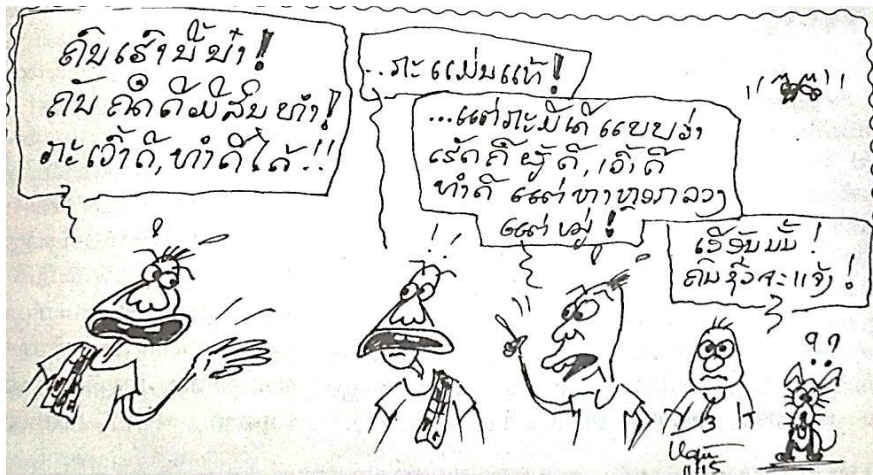 ຄົນເຮົານີ້ນ່າ!
ຄັນຄິດດີມີສິນທຳ!
ກະເວົ້າດີ, ທຳດີໄດ້!!
..ກະແມ່ນແທ້!
...ແຕ່ກະມີເດ໊ ແບບວ່າ
ເຮັດຄືຜູ້ດີ, ເວົ້າດີ
ທຳດີ ແຕ່ຫາຫຼອກລວງ
ແຕ່ໝູ່!
ເອີອັນນັ້ນ!
ຄົນຊົ່ວຈະແຈ້ງ!
??
11/15